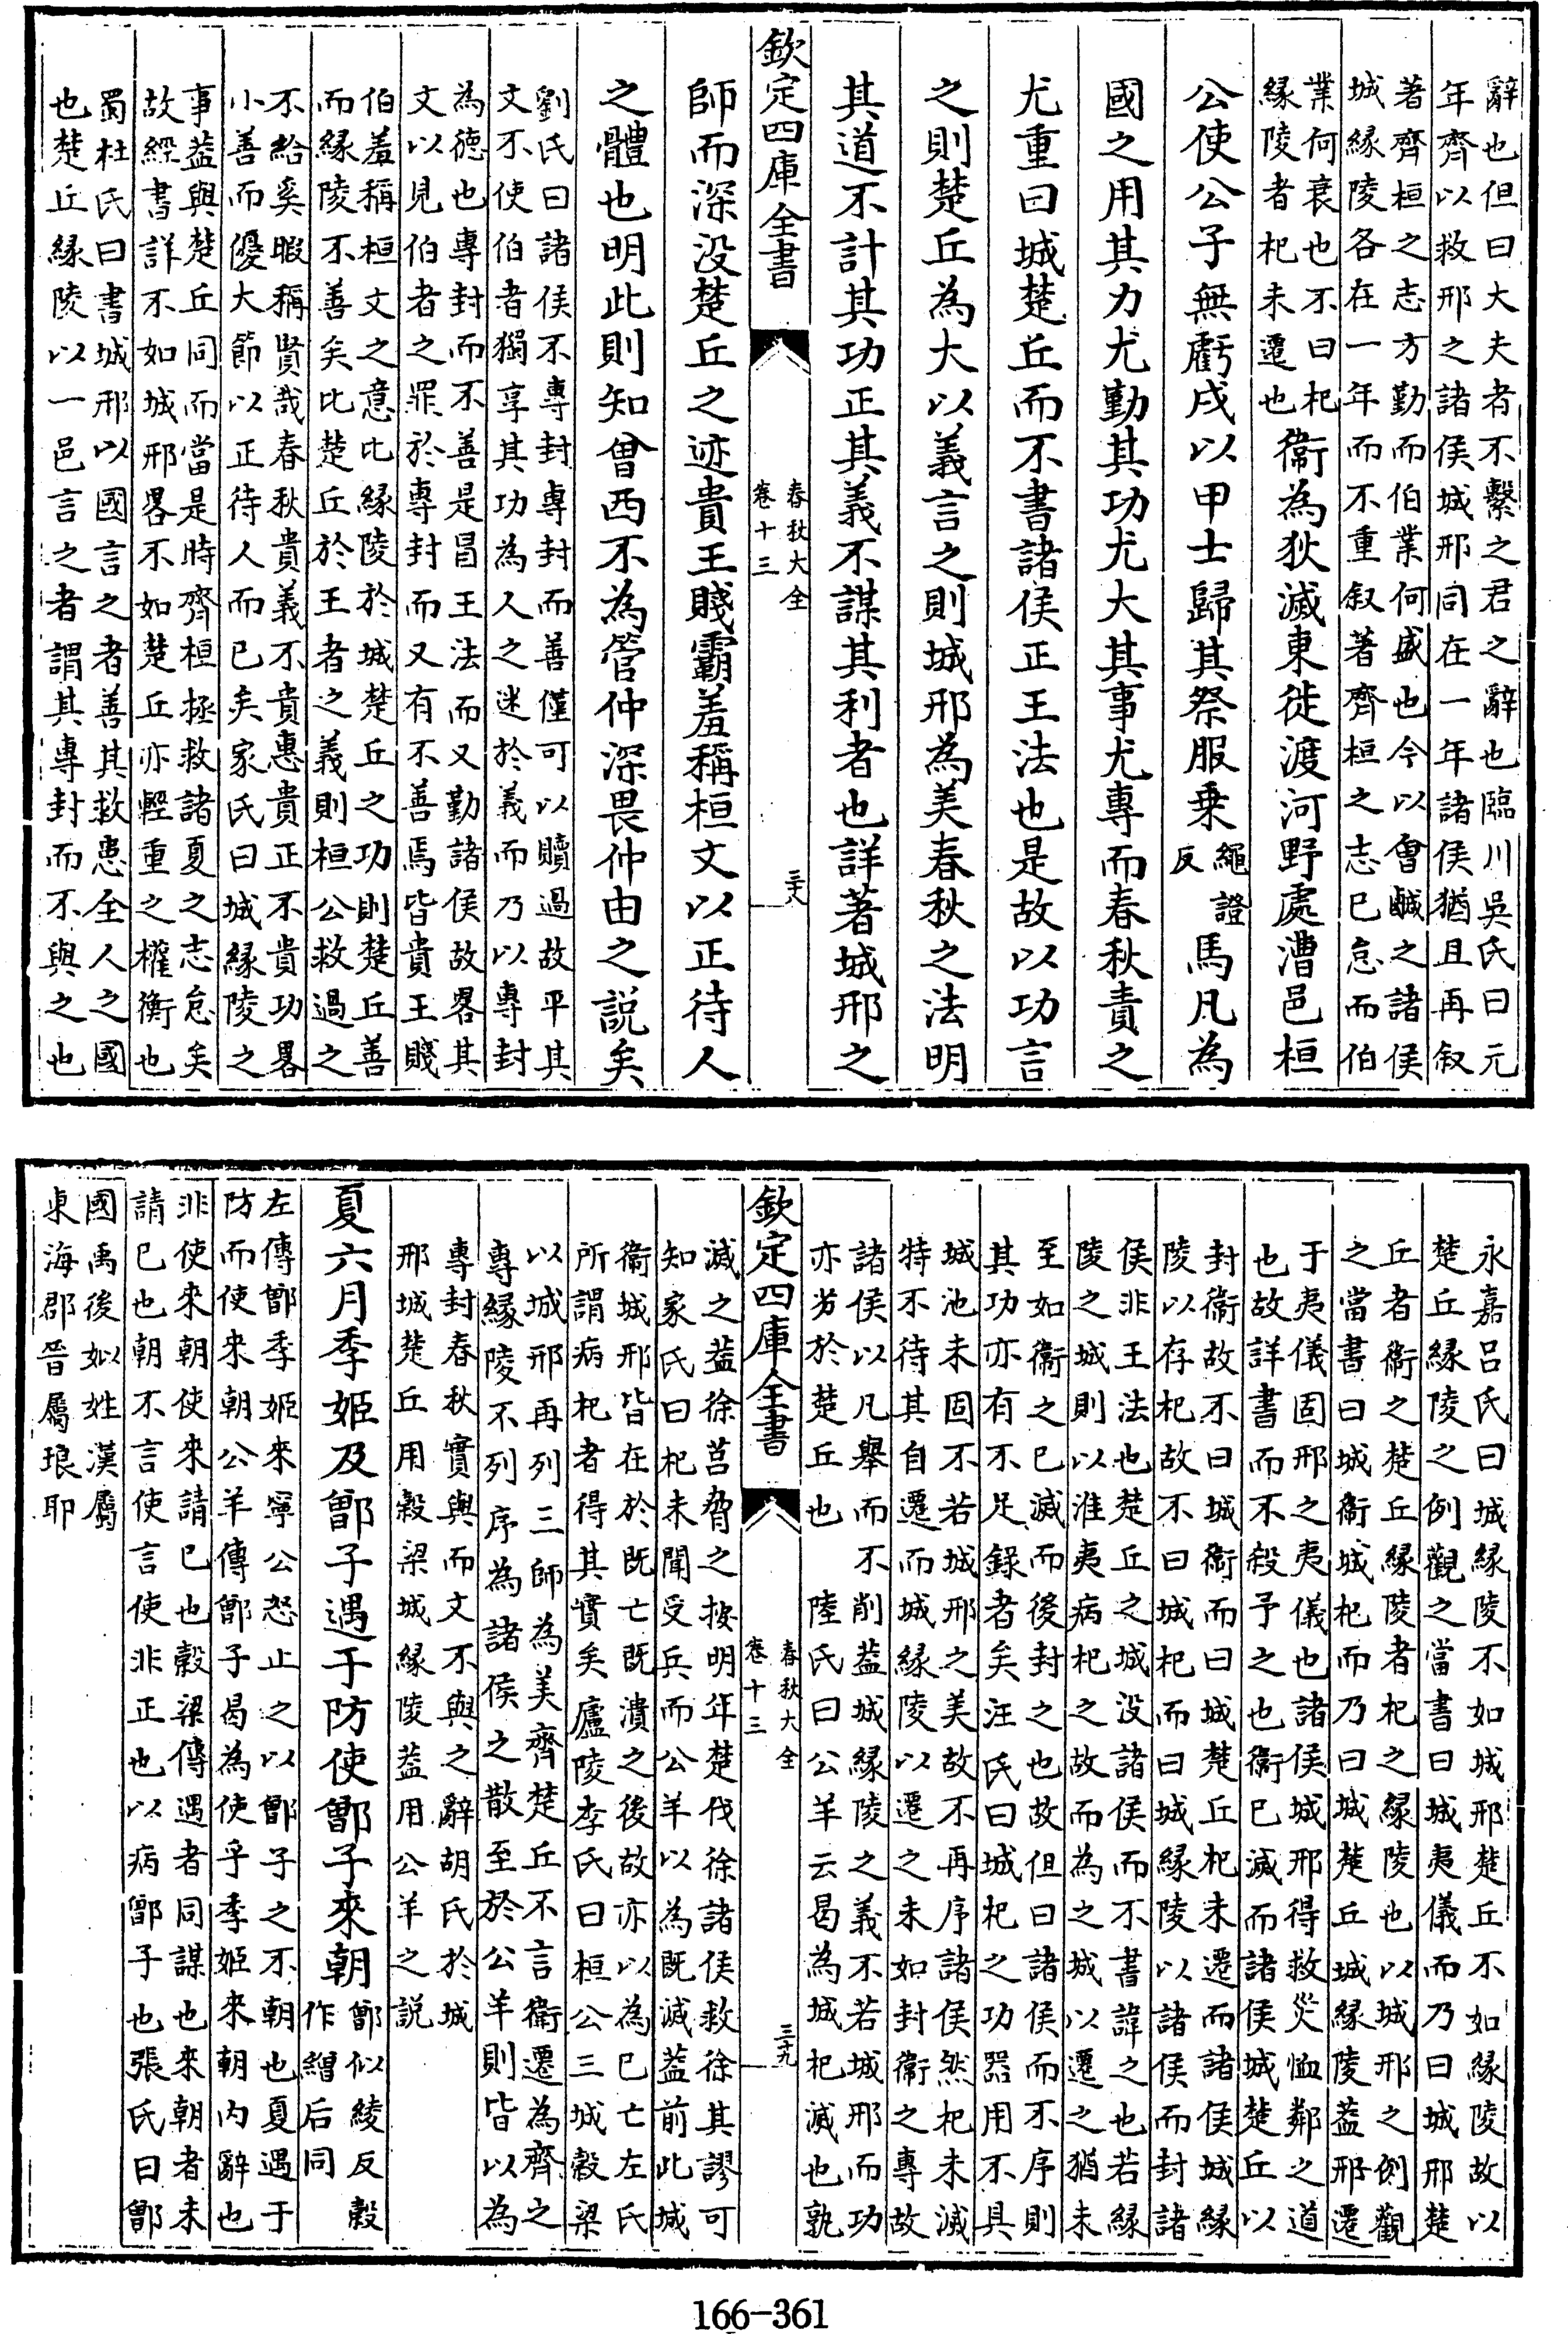 辭也但曰大夫者不繫之君之辭也臨川吳氏曰元
年齊以救邢之諸侯城邢同在一年諸侯猶且再叙
著齊桓之志方勤而伯業何盛也今以會鹹之諸侯
城緣陵各在一年而不重叙著齊桓之志已怠而伯
業何衰也不曰杞
緣陵者杞未遷也
衞為狄滅東徙渡河野處漕邑桓
公使公子無虧戍以甲士歸其祭服乗繩證反馬凡為
國之用其力尤勤其功尤大其事尤專而春秋責之
尤重曰城楚丘而不書諸侯正王法也是故以功言
之則楚丘為大以義言之則城邢為美春秋之法明
其道不計其功正其義不謀其利者也詳著城邢之
欽定四庫全書
春秋大全
卷十三
三十八
師而深没楚丘之迹貴王賤霸羞稱桓文以正待人
之體也明此則知曾西不為管仲深畏仲由之説矣
劉氏曰諸侯不專封專封而善僅可以贖過故平其
文不使伯者獨享其功為人之迷於義而乃以專封
為德也專封而不善是冒王法而又勤諸侯故畧其
文以見伯者之罪於專封而又有不善焉皆貴王賤
伯羞稱桓文之意比緣陵於城楚丘之功則楚丘善
而緣陵不善矣比楚丘於王者之義則桓公救過之
不給奚暇稱賢哉春秋貴義不貴惠貴正不貴功畧
小善而優大節以正待人而已矣家氏曰城緣陵之
事葢與楚丘同而當是時齊桓拯救諸夏之志怠矣
故經書詳不如城邢畧不如楚丘亦輕重之權衡也
蜀杜氏曰書城邢以國言之者善其救患全人之國
也楚丘緣陵以一邑言之者謂其專封而不與之也
永嘉呂氏曰城緣陵不如城邢楚丘不如緣陵故以
楚丘緣陵之例觀之當書曰城夷儀而乃曰城邢楚
丘者衞之楚丘緣陵者杞之緣陵也以城邢之例觀
之當書曰城衞城杞而乃曰城楚丘城緣陵葢邢遷
于夷儀固邢之夷儀也諸侯城邢得救災恤鄰之道
也故詳書而不殺予之也衞已滅而諸侯城楚丘以
封衞故不曰城衞而曰城楚丘杞未遷而諸侯城緣
陵以存杞故不曰城杞而曰城緣陵以諸侯而封諸
侯非王法也楚丘之城没諸侯而不書諱之也若緣
陵之城則以淮夷病杞之故而為之城以遷之猶未
至如衞之已滅而後封之也故但曰諸侯而不序則
其功亦有不足錄者矣汪氏曰城杞之功器用不具
城池未固不若城邢之美故不再序諸侯然杞未滅
特不待其自遷而城緣陵以遷之未如封衞之專故
諸侯以凡舉而不削葢城緣陵之義不若城邢而功
亦劣於楚丘也 陸氏曰公羊云曷為城杞滅也孰
欽定四庫全書
春秋大全
卷十三
三十九
滅之葢徐莒脅之按明年楚伐徐諸侯救徐其謬可
知家氏曰杞未聞受兵而公羊以為既滅葢前此城
衞城邢皆在於既亡既潰之後故亦以為已亡左氏
所謂病杞者得其實矣廬陵李氏曰桓公三城穀梁
以城邢再列三師為美齊楚丘不言衞遷為齊之
專緣陵不列序為諸侯之散至於公羊則皆以為
專封春秋實與而文不與之辭胡氏於城
邢城楚丘用穀梁城緣陵葢用公羊之説
夏六月季姬及鄫子遇于防使鄫子來朝
鄫似綾反穀
作繒后同
左傳鄫季姬來寧公怒止之以鄫子之不朝也夏遇于
防而使來朝公羊傳鄫子曷為使乎季姬來朝内辭也
非使來朝使來請已也穀梁傳遇者同謀也來朝者來
請已也朝不言使言使非正也以病鄫子也張氏曰鄫
國禹後姒姓漢屬
東海郡晉屬琅耶
166-361